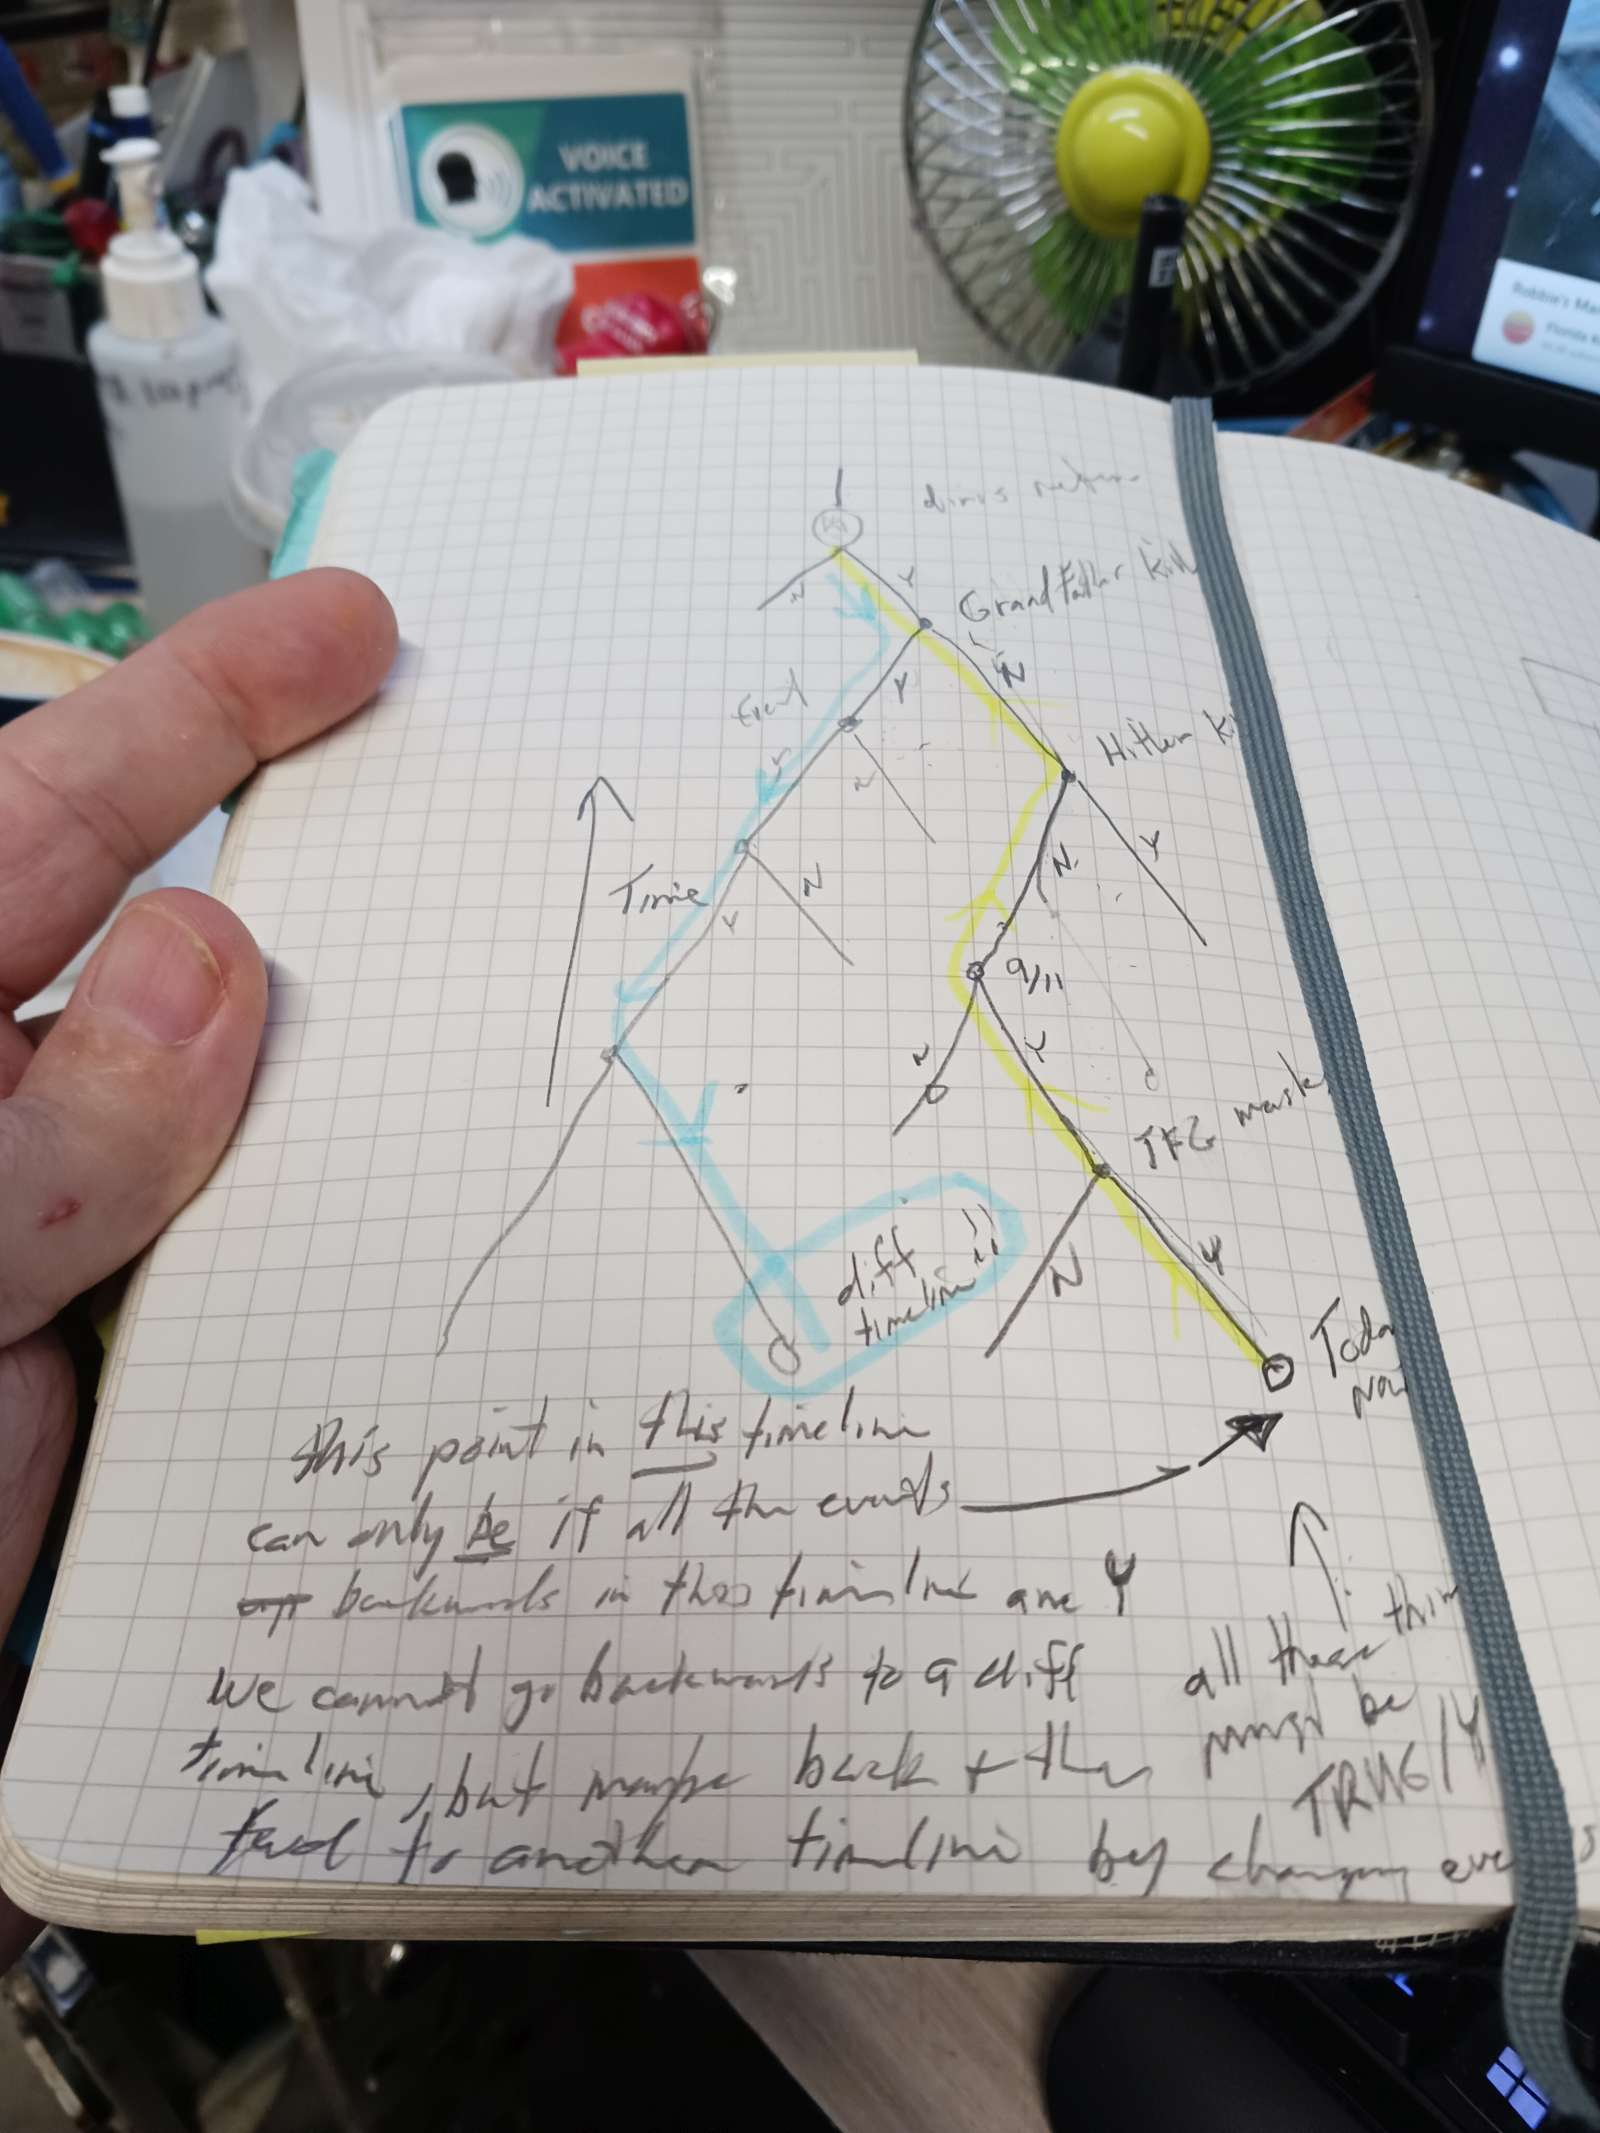 VOICE
ACTIVATED
Robbie's Ma
Florida K
dinos
N
Y
Grandfather kill
Y
N
Event
Hitler ki
N
Y
N
Y
Time
N
Y
9/11
N
Y
diff
timeline!!
N
Y
Today
now
This point in this timeline
can only be if all the events
backwards in this timeline are Y
We cannot go backwards to a diff
timeline, but maybe back + then
fwd to another timeline by changing eve s
all these thin
must be
TRUE/Y